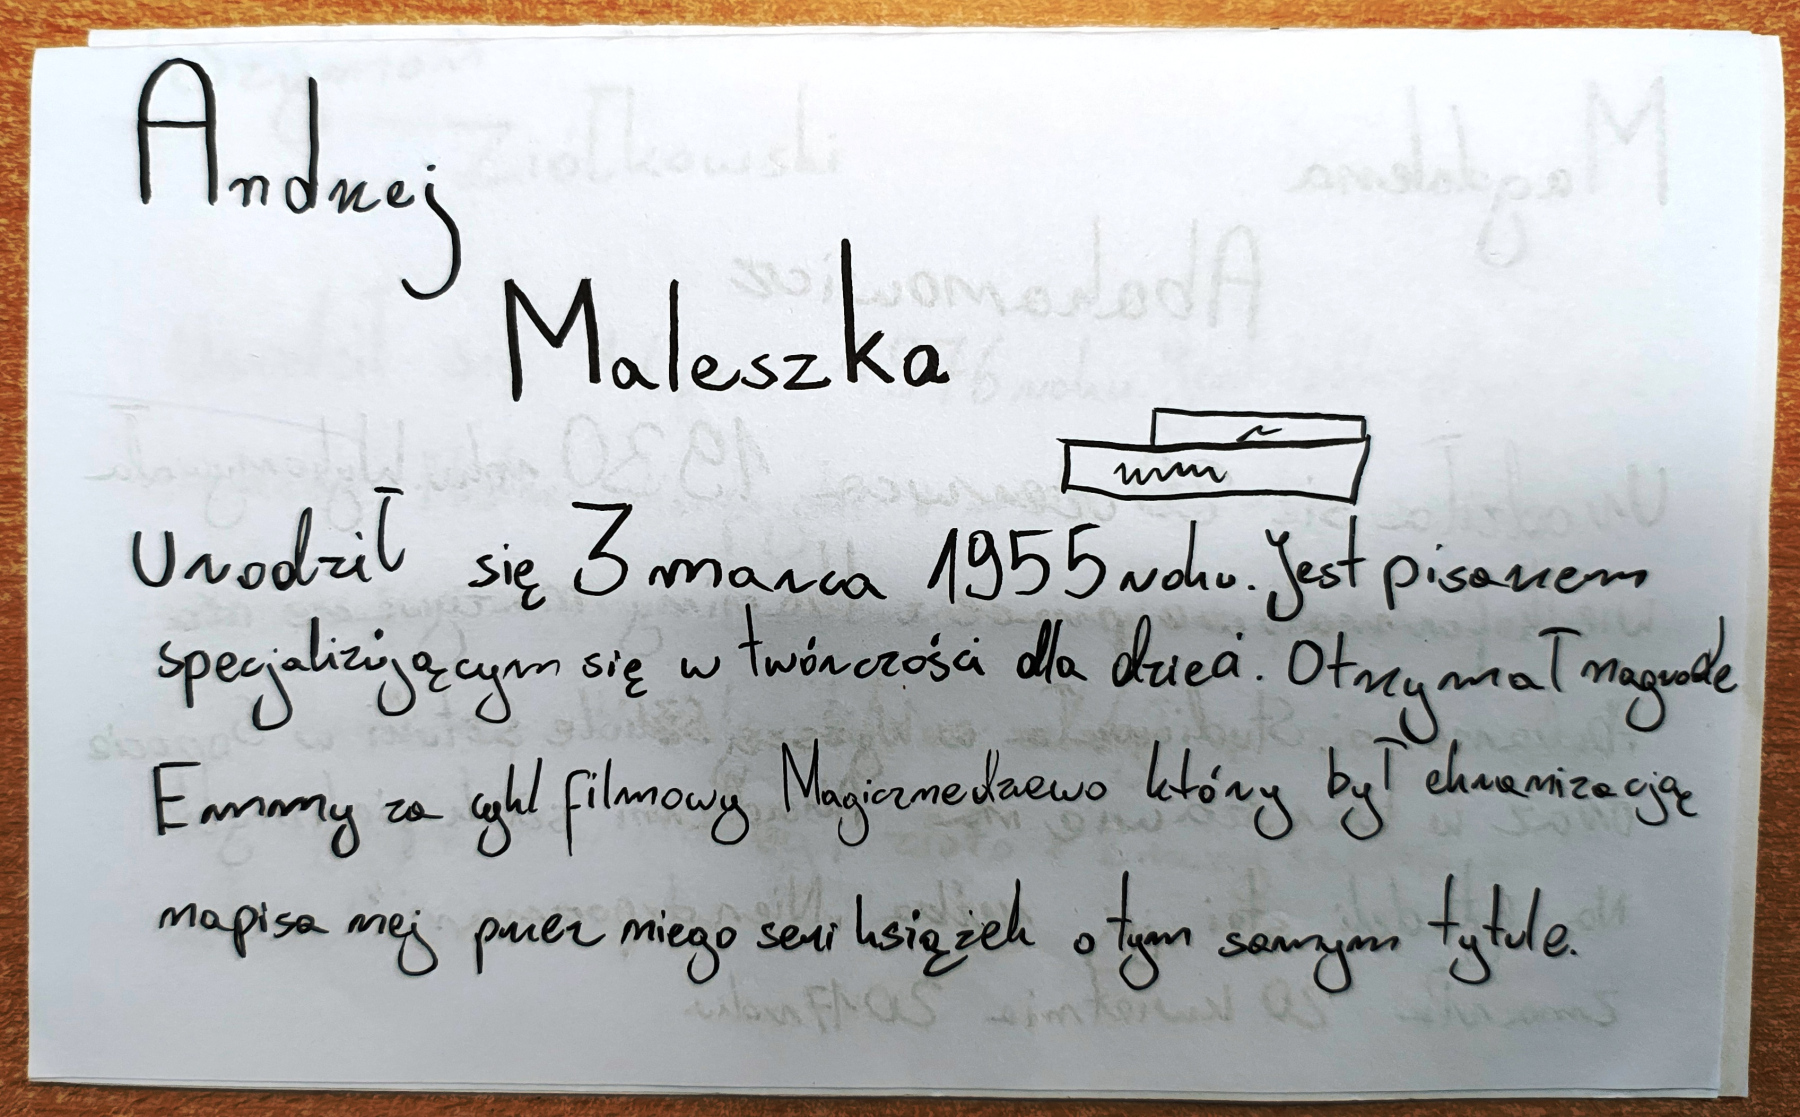 Andrzej
Maleszka
Urodził się 3 marca 1955 roku. Jest pisarzem
specjalizującym się w twórczości dla dzieci. Otrzymał nagrodę
Emmy za cykl filmowy Magiczne drzewo który był ekranizacją
napisanej przez niego serii książek o tym samym tytule.